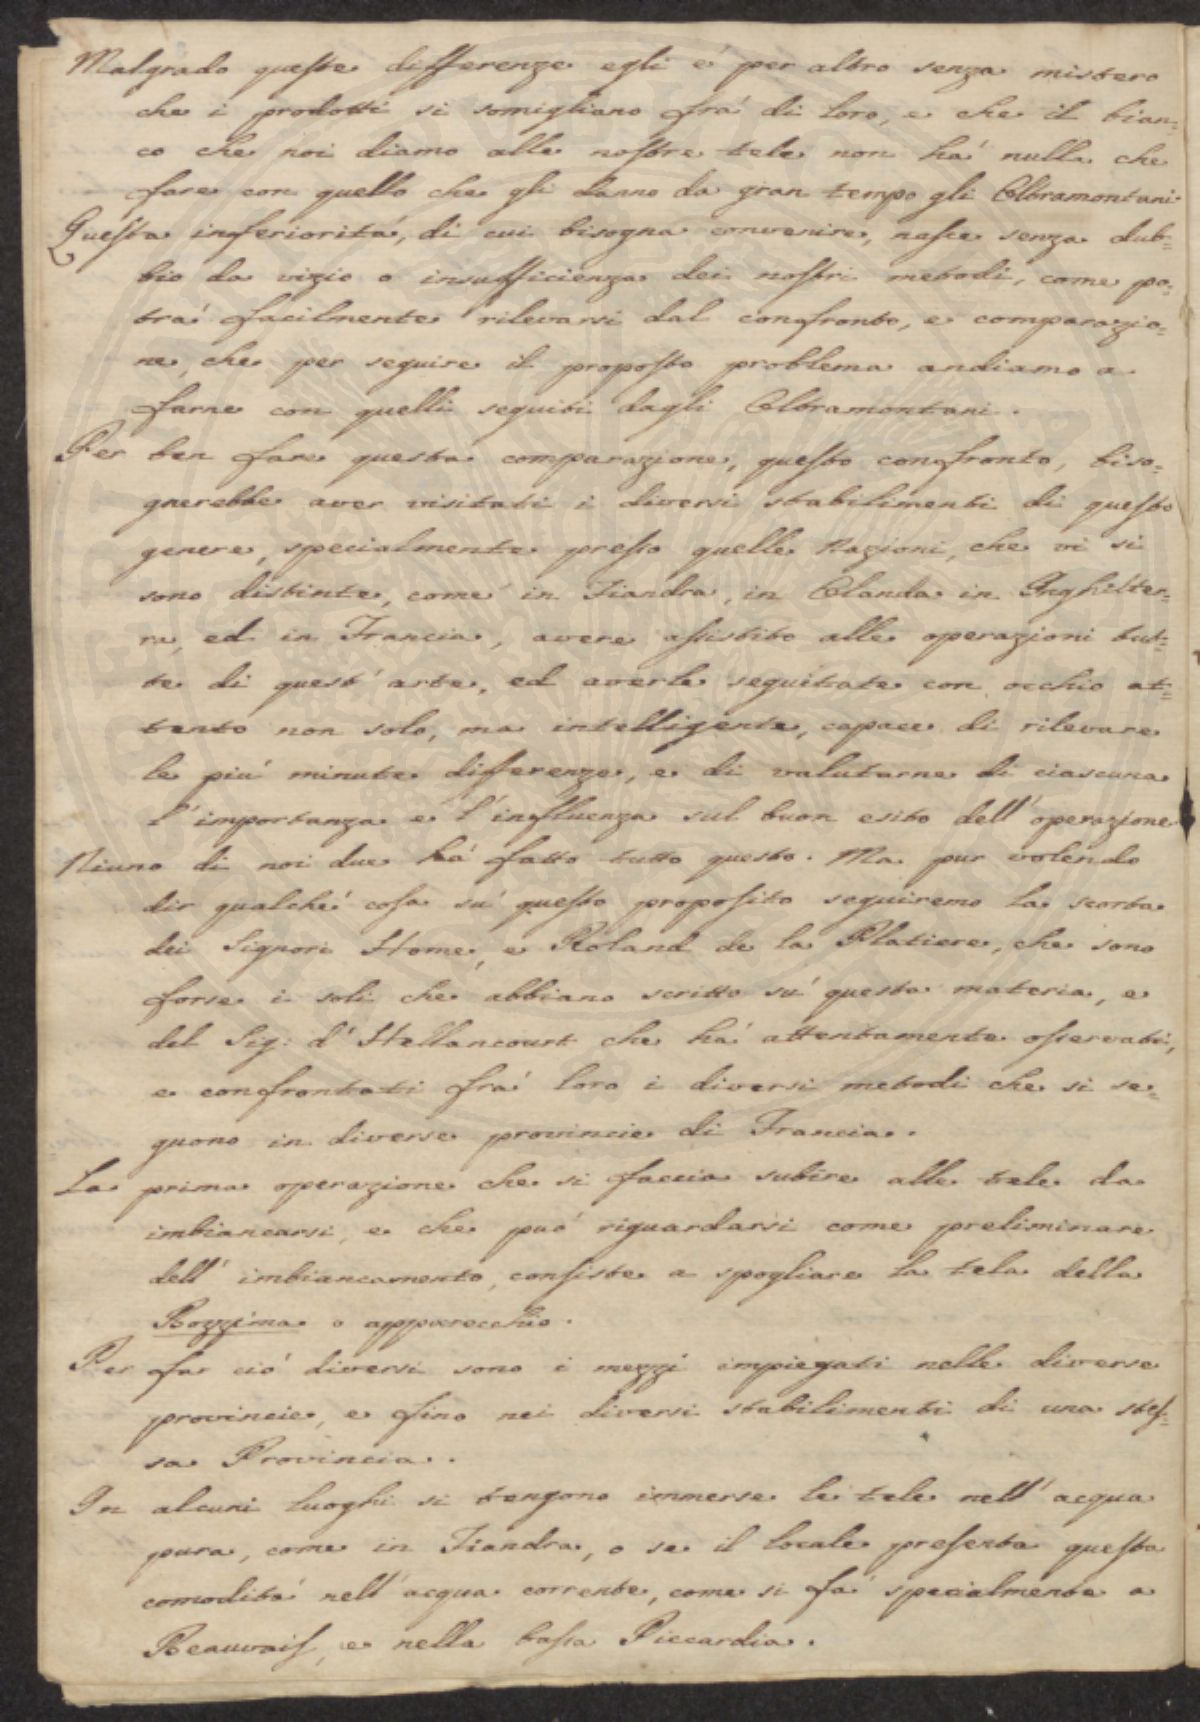 Malgrado queste differenze egli é per altro senza mistero
che i prodotti si somigliano frá di loro, e che il bian=
co che noi diamo alle nostre tele non há nulla che
fare con quello che gli danno da gran tempo gli Oltramontani
Questa inferioritá, di cui bisogna convenire, nasce senza dub=
bio da vizio o insufficienza dei nostri metodi, come po=
trá facilmente rilevarsi dal confronto, e comparazio=
ne, che per seguire il proposto problema andiamo a
farne con quelli seguiti dagli Oltramontani.
Per ben fare questa comparazione, questo confronto, biso=
gnerebbe aver visitati i diversi stabilimenti di questo
genere, specialmente presso quelle Nazioni, che vi si
sono distinte, come in Fiandra, in Olanda in Inghilter=
ra, ed in Francia, avere assistito alle operazioni tut=
te di quest' arte, ed averle seguitate con occhio at=
tento non solo, ma intelligente, capace di rilevare
le piú minute differenze, e di valutarne di ciascuna
l'importanza e l'influenza sul buon esito dell'operazione
Niuno di noi due há fatto tutto questo. Ma pur volendo
dir qualché cosa sú questo proposito seguiremo la scorta
dei Signori Home, e Roland de la Platiere, che sono
forse i soli che abbiano scritto sú questa materia, e
del Sig: d'Hellancourt che há attentamente osservati,
e confrontati frá loro i diversi metodi che si se=
guono in diverse provincie di Francia.
La prima operazione che si faccia subire alle tele da
imbiancarsi, e che puó riguardarsi come preliminare
dell' imbiancamento, consiste a spogliare la tela della
Bozzima o apparecchio.
Per far ció diversi sono i mezzi impiegati nelle diverse
provincie, e fino nei diversi stabilimenti di una stes=
sa Provincia.
In alcuni luoghi si tengono immerse le tele nell' acqua
pura, come in Fiandra, o se il locale presenta questa
comoditá nell' acqua corrente, come si fá specialmente a
Beauvais, e nella bassa Piccardia.